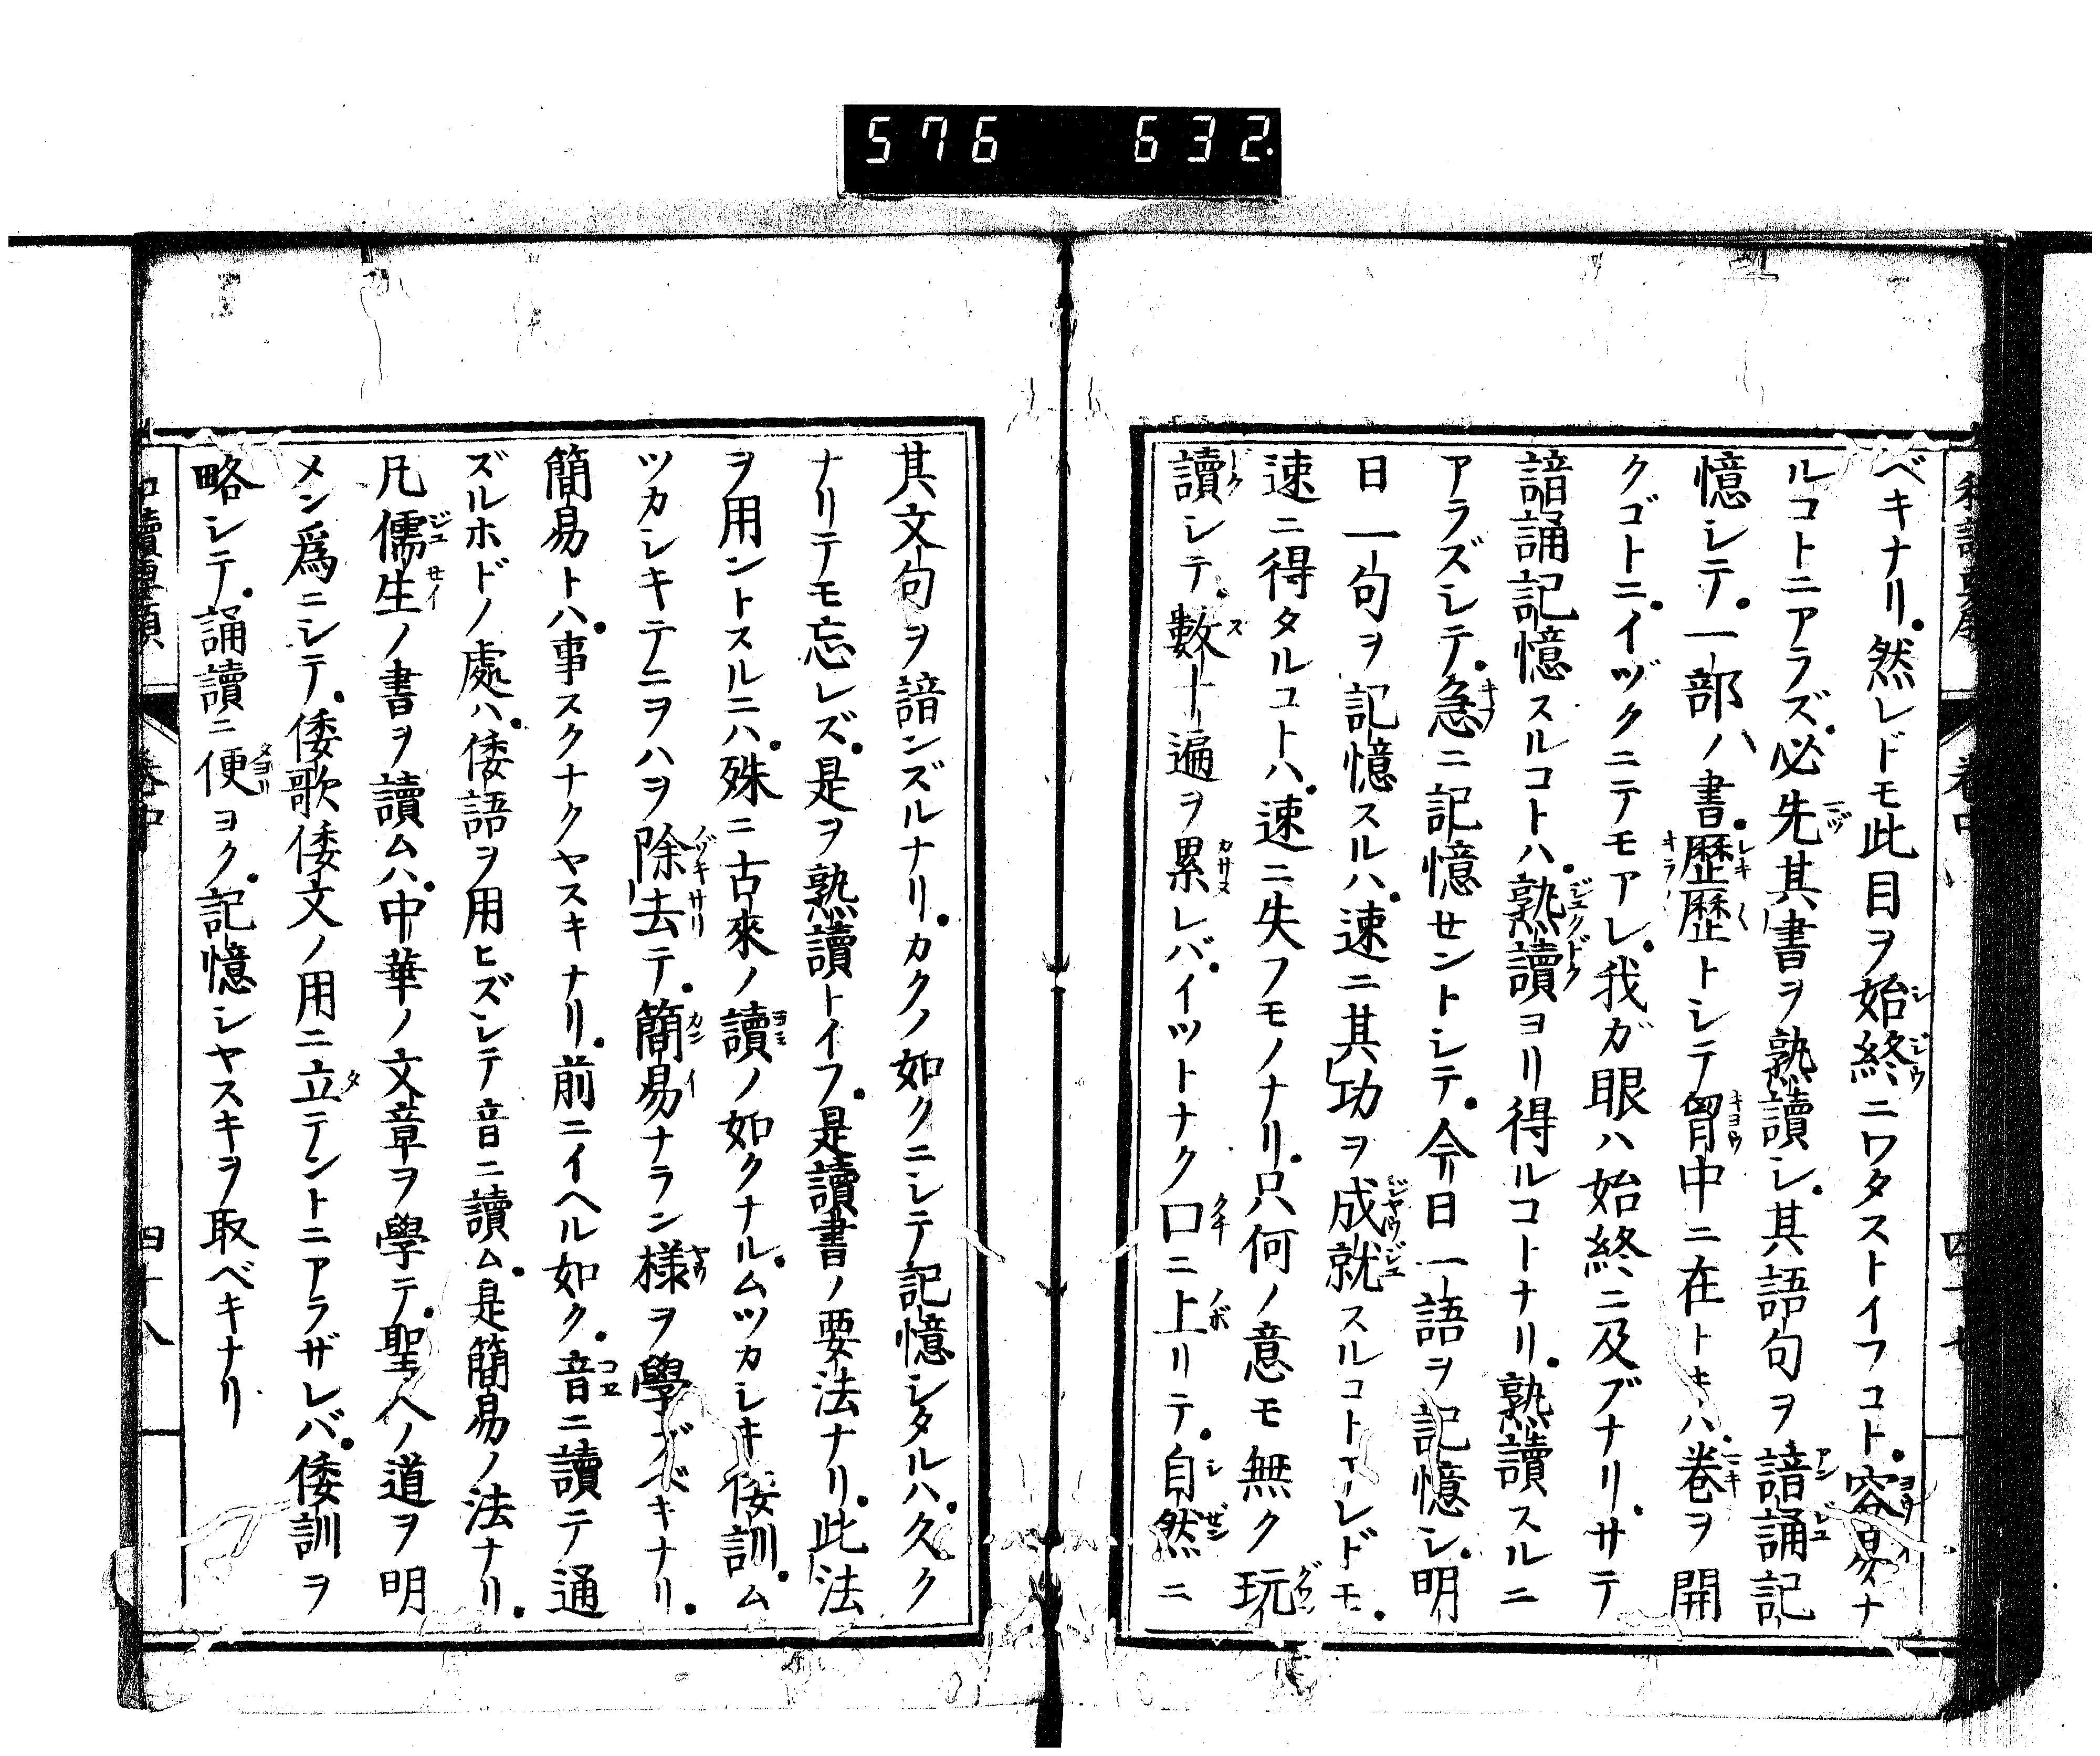 576 632
ベキナリ。然レドモ此目ヲ始終ニワタストイフコト。容易ナ
ルコトニアラズ。必先其書ヲ熟讀シ。其語句ヲ諳誦記
憶シテ。一部ノ書。歷歷トシテ胷中ニ在トキハ。卷ヲ開
クゴトニ。イヅクニテモアレ。我ガ眼ハ始終ニ及ブナリ。サテ
諳誦記憶スルコトハ。熟讀ヨリ得ルコトナリ。熟讀スルニ
アラズシテ。急ニ記憶セントシテ。今日一語ヲ記憶シ。明
日一句ヲ記憶スルハ。速ニ其功ヲ成就スルコトアレドモ。
速ニ得タルコトハ。速ニ失フモノナリ。只何ノ意モ無ク玩
讀シテ。數十遍ヲ累レバ。イツトナク口ニ上リテ。自然ニ
其文句ヲ諳ンズルナリ。カクノ如クニシテ記憶シタルハ。久ク
ナリテモ忘レズ。是ヲ熟讀トイフ。是讀書ノ要法ナリ。此法
ヲ用ントスルニハ。殊ニ古來ノ讀ノ如クナル。ムツカシキ倭訓。ム
ツカシキテニヲハヲ除去テ。簡易ナラン樣ヲ學ブベキナリ。
簡易トハ。事スクナクヤスキナリ。前ニイヘル如ク。音ニ讀テ通
ズルホドノ處ハ。倭語ヲ用ヒズシテ音ニ讀ム。是簡易ノ法ナリ。
凡儒生ノ書ヲ讀ムハ。中華ノ文章ヲ學テ。聖人ノ道ヲ明
メン爲ニシテ。倭歌倭文ノ用ニ立テントニアラザレバ。倭訓ヲ
略シテ。誦讀ニ便ヨク。記憶シヤスキヲ取ベキナリ
卷中
四十八